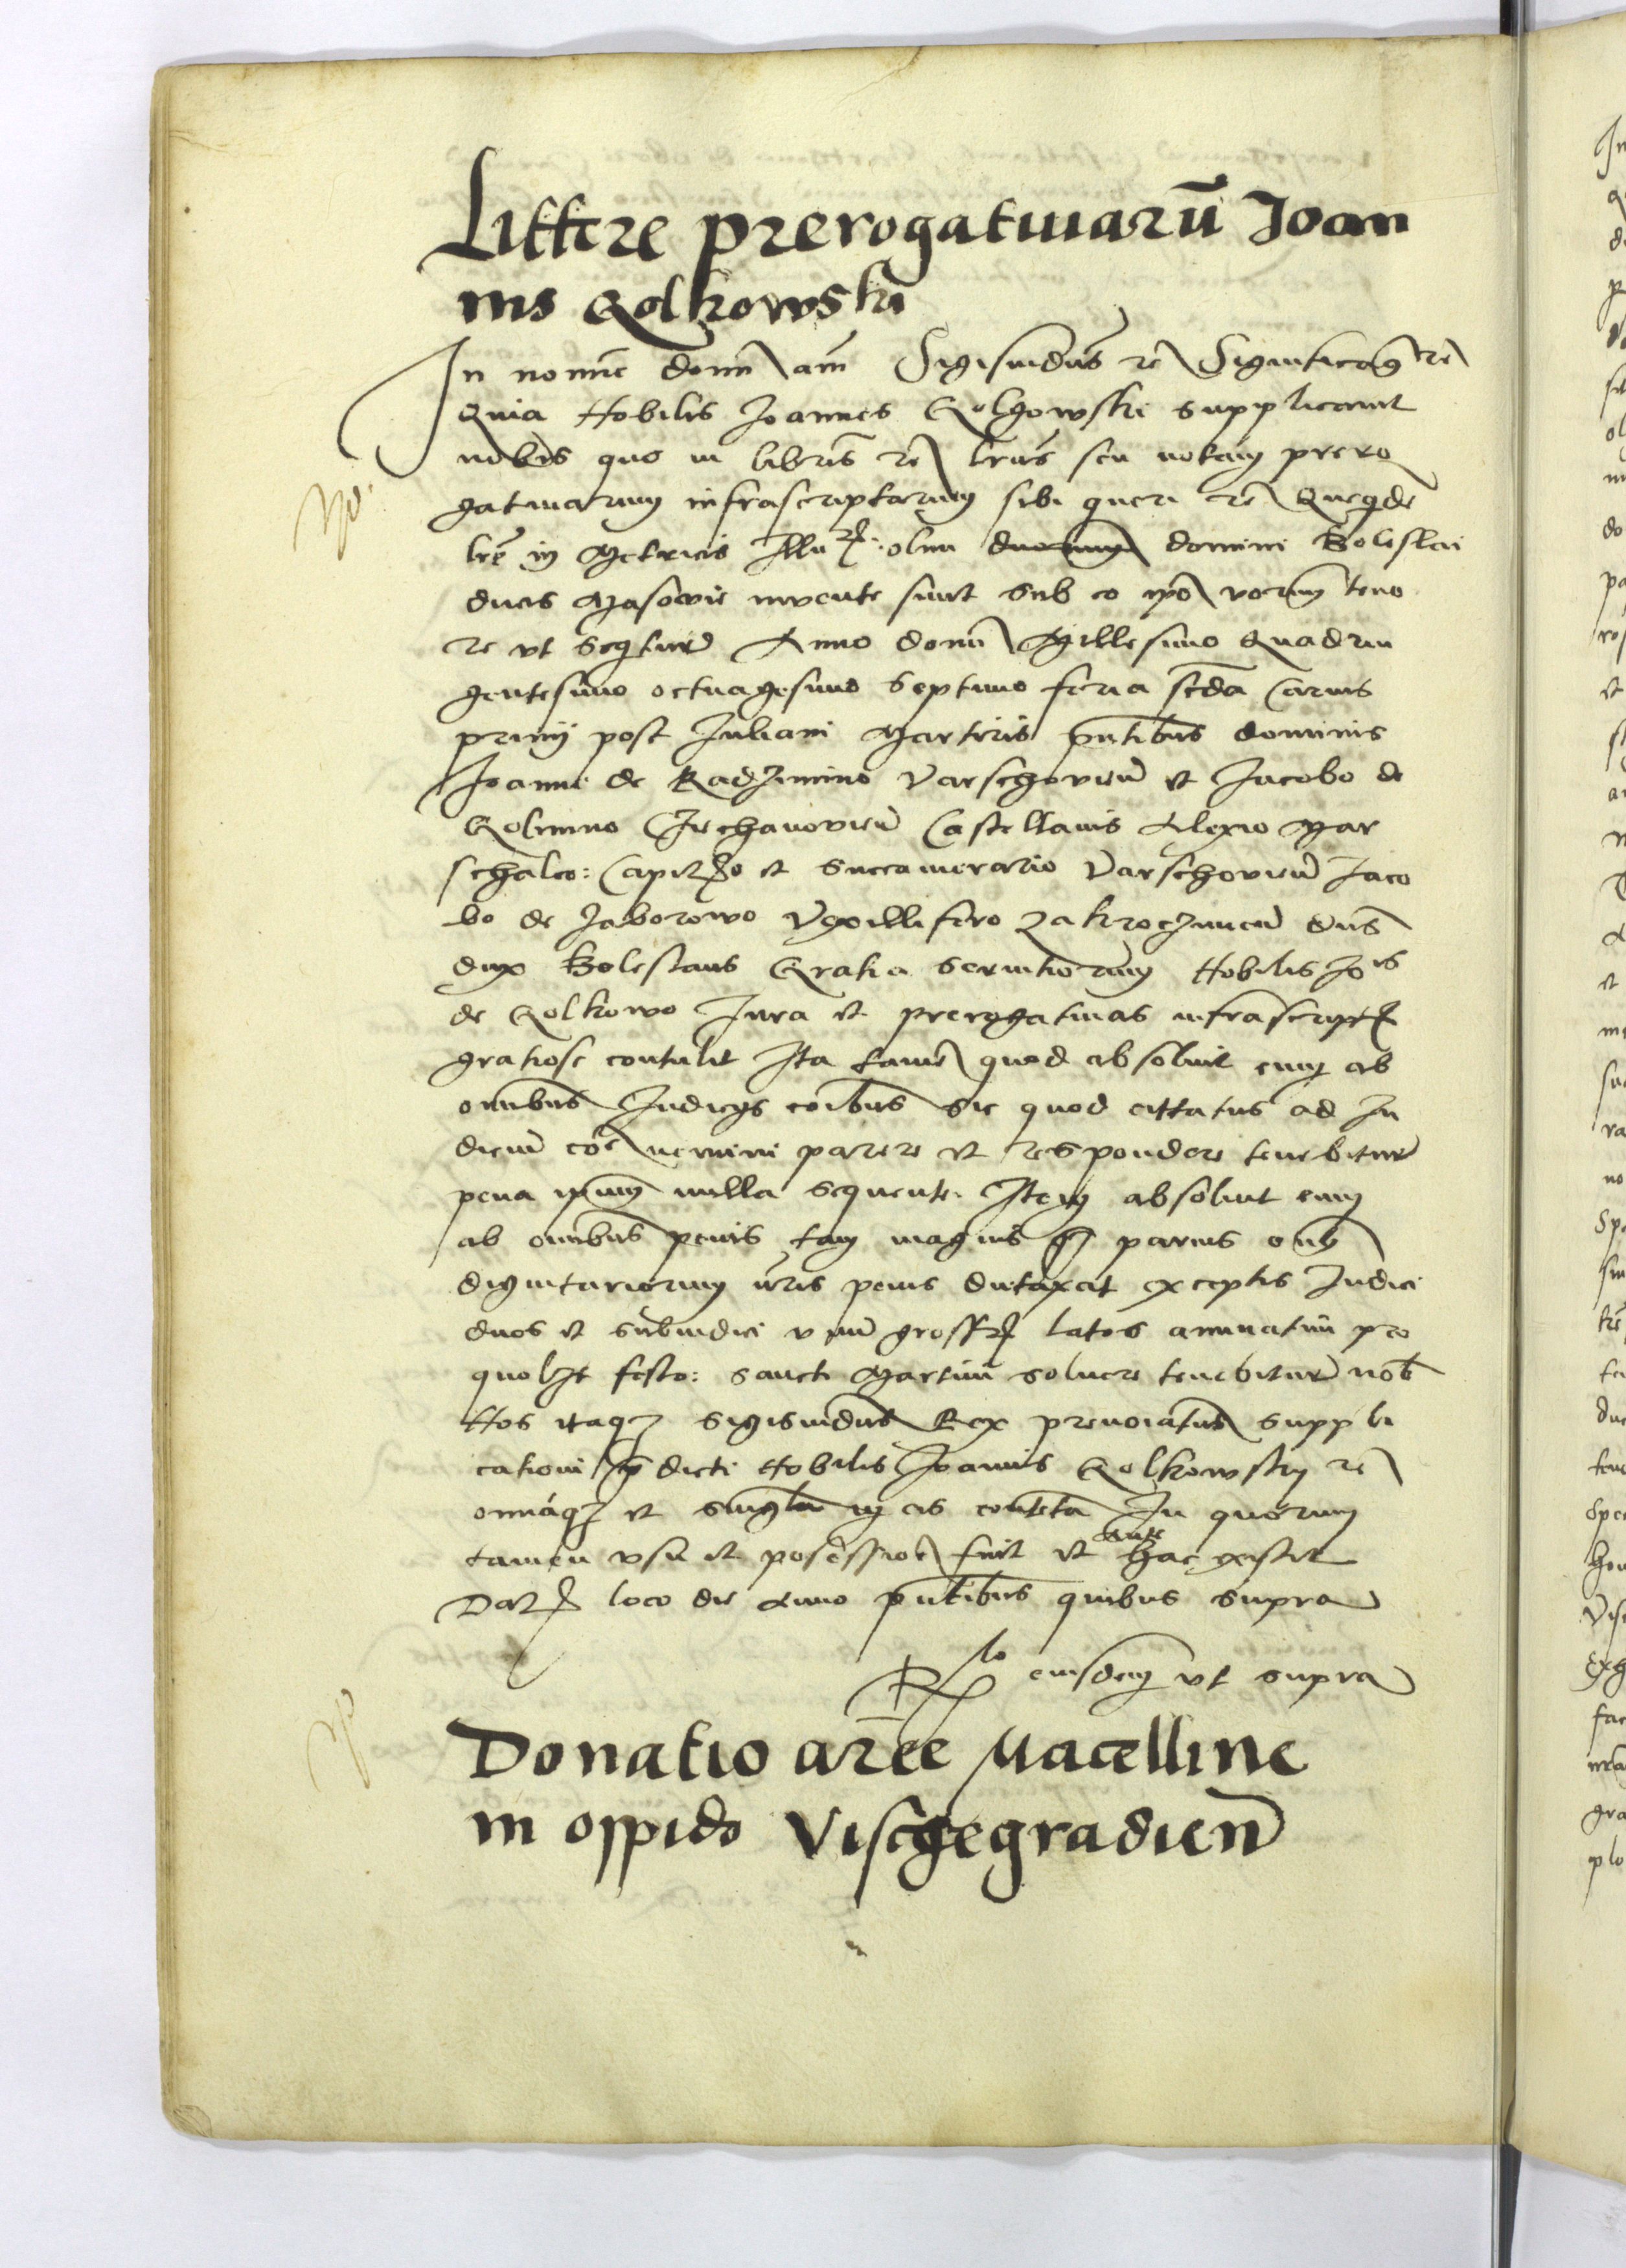 Littere prerogatiuarū Joan
nis Golkowski
In nomīe domī am̄ Sigismūdus rē Significamꝰ rē
Quia Nobilis Joannes Golgowski supplicauit
nobis quo in libris rē lrās seu notam prero
gatiuarum infrascriptarum sibi queri rē Quequidē
lrē in Metricis Illu olim duorum domini Boleslai
ducis Masovie invente sunt sub eo verborum teno
re vt seqtur Anno domī Millesimo Quadrin
gentesimo octuagesimo septimo feria scda Carnis
primij post Juliani Martiris pntibus dominis
Joanne de Radzimino Varschovien et Jacobo de
Golimino Czechanovien Castellanis Alexio Mar
schalco: Capitꝫo et Succamerario Varschovien Jaco
bo de Jaborowo Vexillifero Zakroczimen dns
dux Boleslaus Gratia seruitiorum Nobilis Jois
de Golkowo Jura et prerogatiuas infrascript
gratiose contulit Ita tamē quod absoluit eum ab
omnibus Judicys coibus sic quod cittatus ad Ju
dicium coe nemini parere et respondere tenebitur
pena nulla sequente. Item absoluit eum
ab omnibus penis tam magnis paruis
dignitariorum nris penis dutaxat exceptis Judici
duos et subiudici vnum gross latos annuatim pro
quolꝫt festo: sancti Martini soluere tenebitur nob
Nos itaqꝫ Sigismūdus Rex prenoiatus suppli
cationi dicti Nobilis Joannis Golkowsky rē
omiaqꝫ et singla in eis contēta In quorum
tamen vsu et possessioe fuit et ante hac existit
Dat loco die Anno pntibus quibus supra
Rlo eiusdem vt supra
Donatio aree Macelline
in oppido Vischegradien